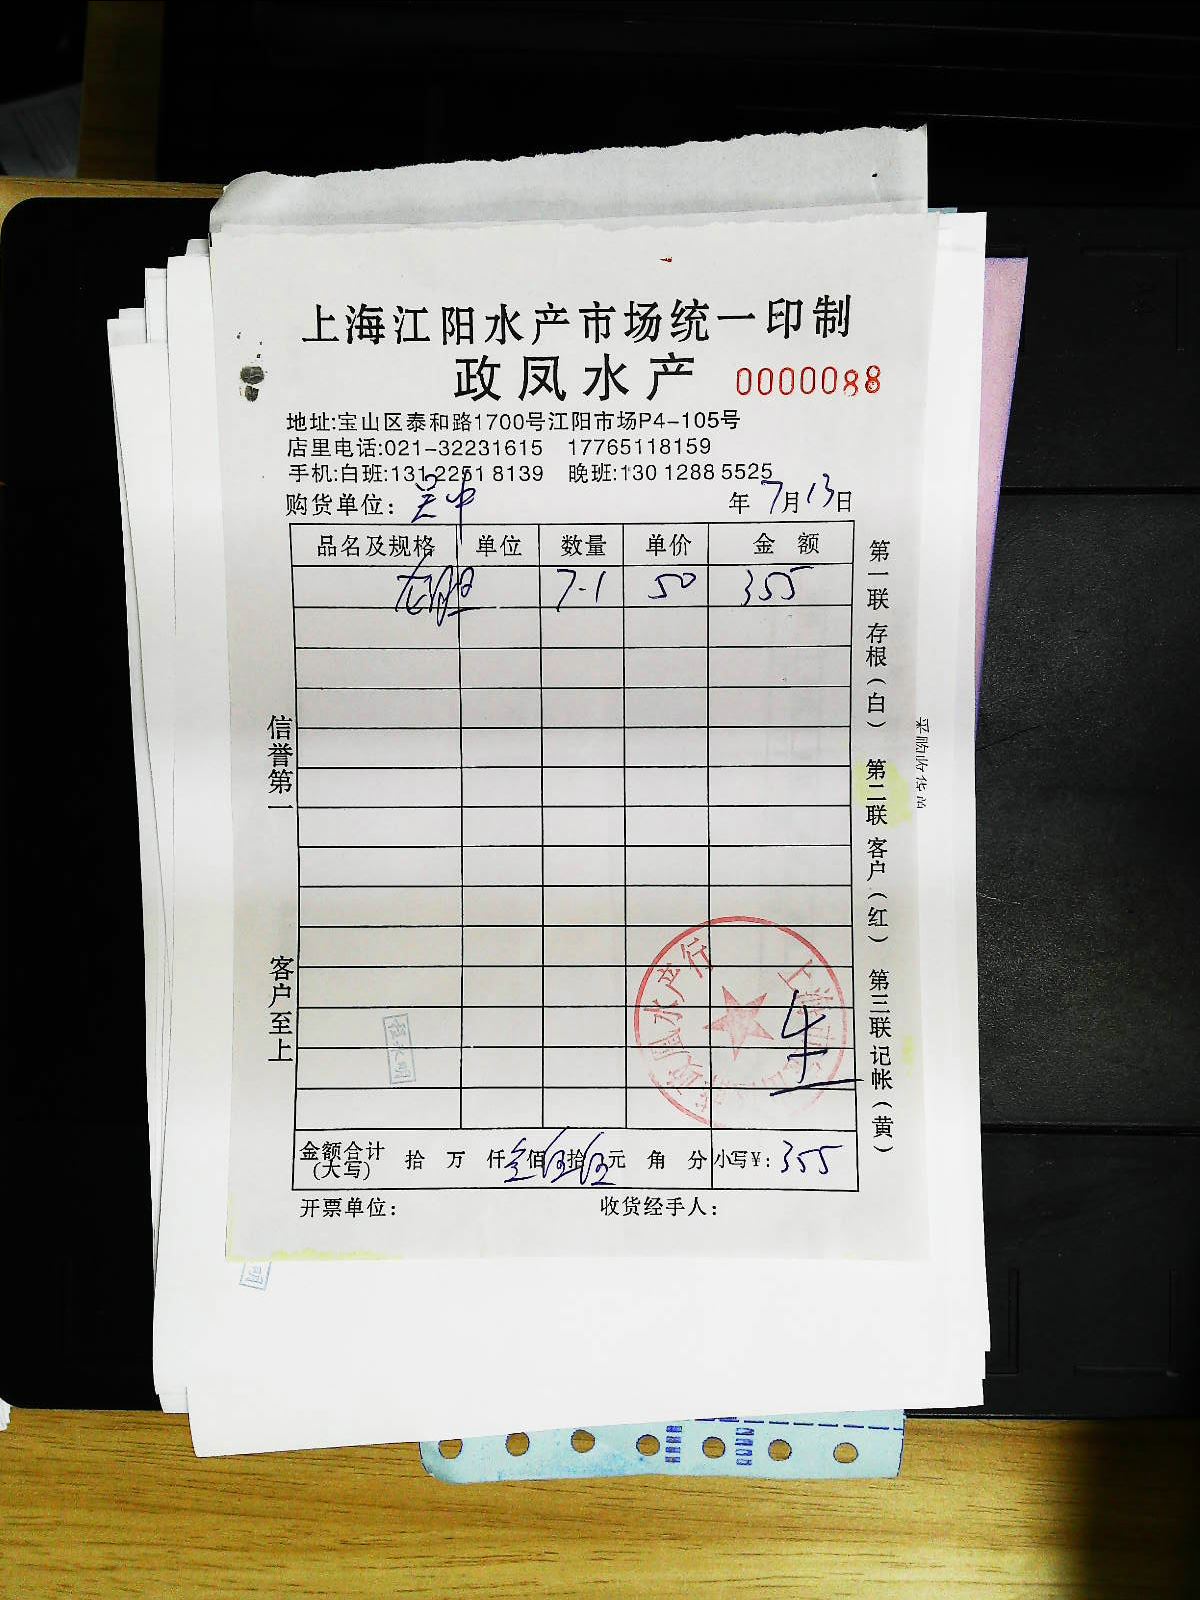 上海江阳水产市场统一印制
政凤水产 0000088
地址:宝山区泰和路1700号江阳市场P4-105号
店里电话:021-32231615 17765118159
手机:白班:131 2251 8139 晚班:130 1288 5525
购货单位: 吴中 年 7月13日
品名及规格 单位 数量 单价 金额
龙胆 7-1 50 355
信誉第一
客户至上
第一联存根(白) 第二联客户(红) 第三联记帐(黄)
采购收货单
水产行
金额合计(大写) 拾 万 仟 叁佰伍拾伍元 角 分 小写¥: 355
开票单位: 收货经手人: